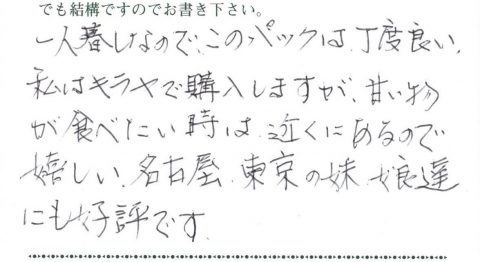 でも結構ですのでお書き下さい。
一人暮しなので、このパックは丁度良い、
私はキラヤで購入しますが、甘い物
が食べたい時は近くにあるので
嬉しい、名古屋、東京の妹、娘達
にも好評です。